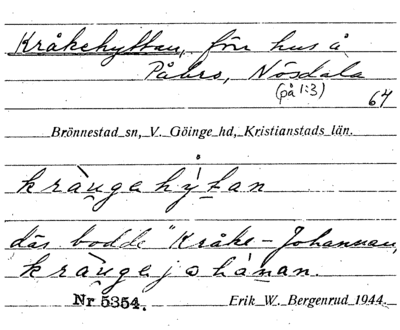 Kråkehyttan, förr hus å
Påbro, Nösdala
(på 1:3)
64
Brönnestad sn, V. Göinge hd, Kristianstads län.
där bodde "Kråke-Johannan,
Nr 5354. Erik W. Bergenrud 1944.